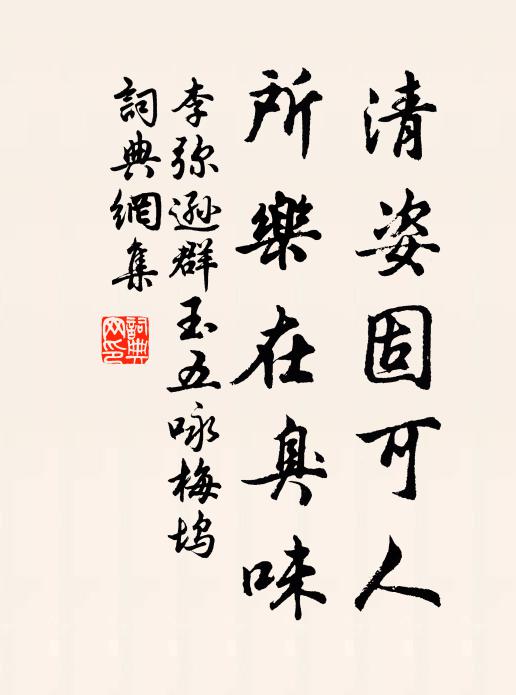 清姿固可人
所樂在臭味
李弥遜群玉五咏梅塢
詞典網集
詞典
网印